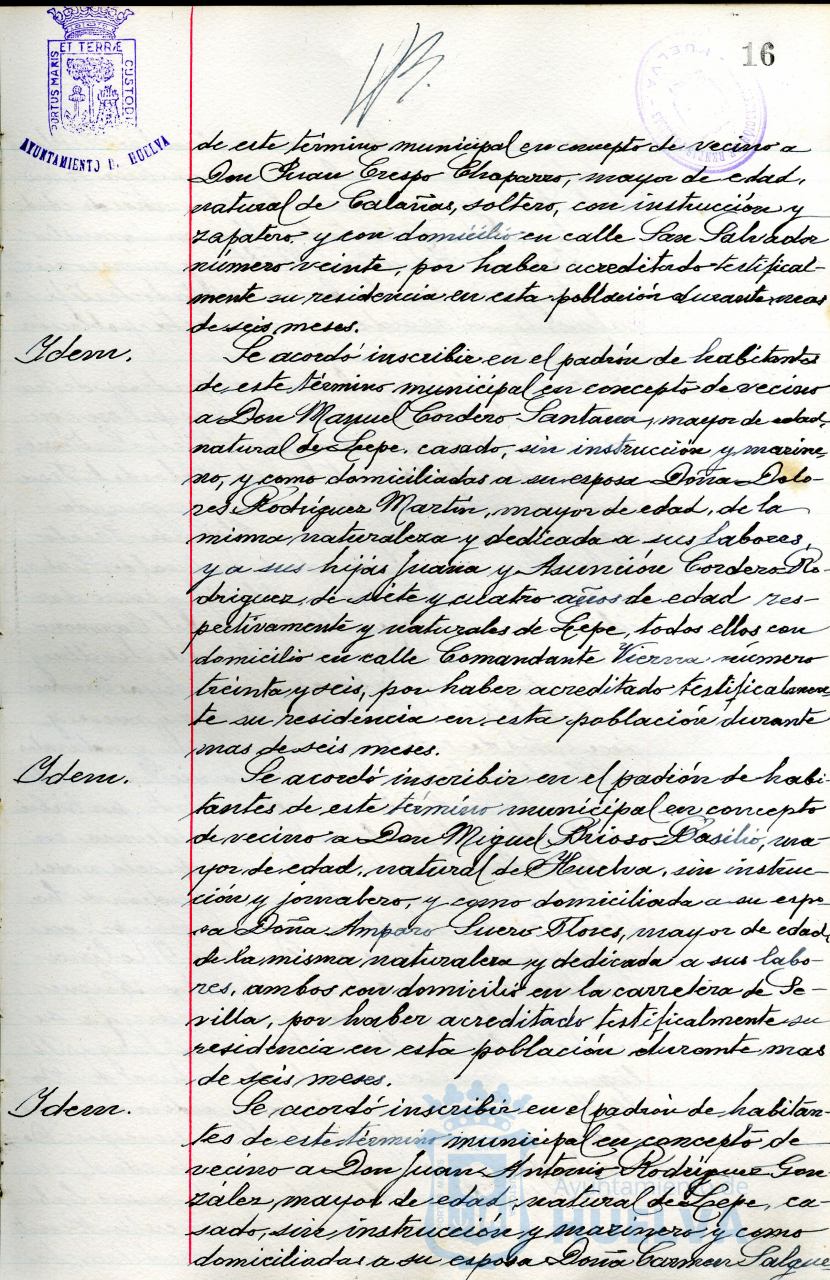 16
ET TERRÆ
PORTUS MARIS
CUSTODIA
AYUNTAMIENTO D. HUELVA
HUELVA
de este término municipal en concepto de vecino a
Don Juan Crespo Chaparro, mayor de edad,
natural de Calañas, soltero, con instrucción y
zapatero y con domicilio en calle San Salvador
número veinte, por haber acreditado testifical-
mente su residencia en esta población durante mas
de seis meses.
Idem.
Se acordó inscribir en el padrón de habitantes
de este término municipal en concepto de vecino
a Don Manuel Cordero Santana, mayor de edad,
natural de Lepe, casado, sin instrucción y marine-
ro, y como domiciliadas a su esposa Doña Dolo-
res Rodríguez Martín, mayor de edad, de la
misma naturaleza y dedicada a sus labores,
y a sus hijas Juana y Asunción Cordero Ro-
driguez, de siete y cuatro años de edad res-
pectivamente y naturales de Lepe, todos ellos con
domicilio en calle Comandante Vierna número
treinta y seis, por haber acreditado testificalmen-
te su residencia en esta población durante
mas de seis meses.
Idem.
Se acordó inscribir en el padrón de habi-
tantes de este término municipal en concepto
de vecino a Don Miguel Brioso Basilio, ma-
yor de edad, natural de Huelva, sin instruc-
ción y jornalero, y como domiciliada a su espo-
sa Doña Amparo Suero Flores, mayor de edad,
de la misma naturaleza y dedicada a sus labo-
res, ambos con domicilio en la carretera de Se-
villa, por haber acreditado testificalmente su
residencia en esta población durante mas
de seis meses.
Idem.
Se acordó inscribir en el padrón de habitan-
tes de este término municipal en concepto de
vecino a Don Juan Antonio Rodríguez Gon-
zález, mayor de edad, natural de Lepe, ca-
sado, sin instrucción y marinero y como
domiciliadas a su esposa Doña Carmen Salgue
Ayuntamiento de
HUELVA